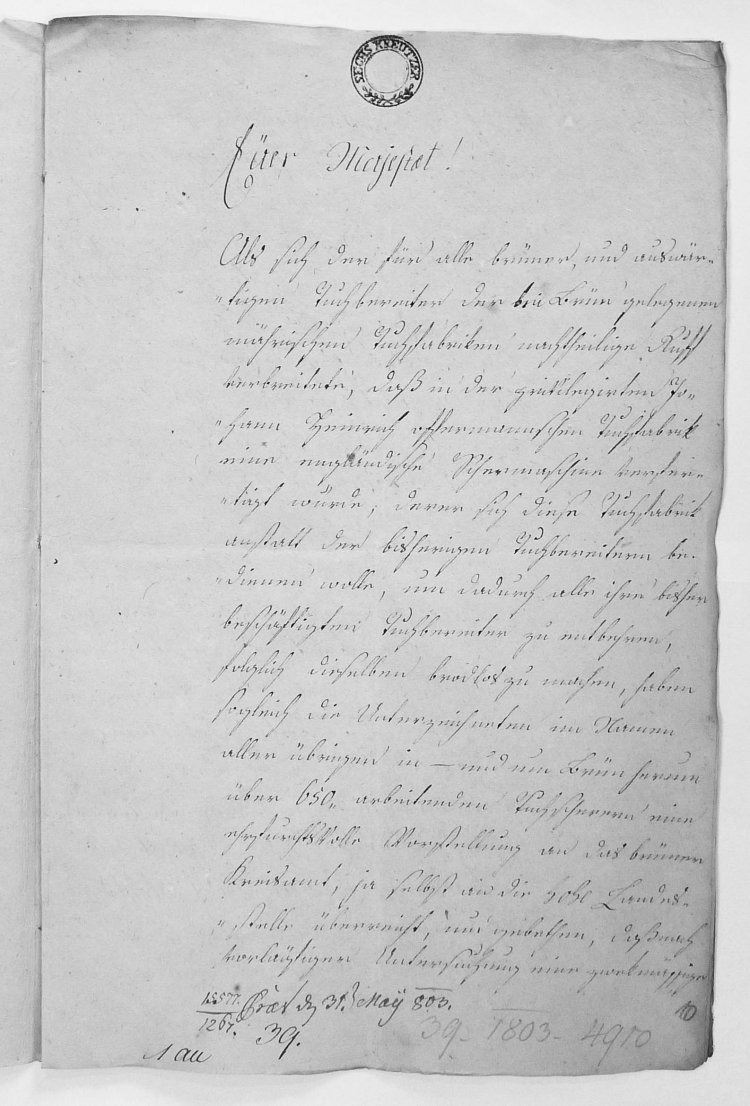 SECHS KREUTZER
Euer Majestæt!
Als sich der für alle brünner, und auswär=
=tigen Tuchbereiter der bei Brün gelegenen
mährischen Tuchfabriken nachtheilige Ruff
verbreitete, daß in der privilegirten Jo=
=hann Heinrich offermannischen Tuchfabrik
eine engländische Schermaschine verfer=
=tigt wurde, derer sich diese Tuchfabrik
anstatt der bisherigen Tuchbereitern be=
=dienen wolle, um dadurch alle ihre bisher
beschäftigten Tuchbereiter zu entbehren,
folglich dieselben brodlos zu machen, haben
sogleich die Unterzeichneten im Namen
aller übrigen in – und um Brün herum
über 650 arbeitenden Tuchscherern eine
ehrfurchtsvolle Vorstellung an das brünner
Kreisamt, ja selbst an die hohe Landes=
=stelle überreicht, und gebethen, daß nach
vorläufiger Untersuchung eine zwekmässige
12577. Præs den 31. May 803.
1267. 39.
39 - 1803 - 4910
10